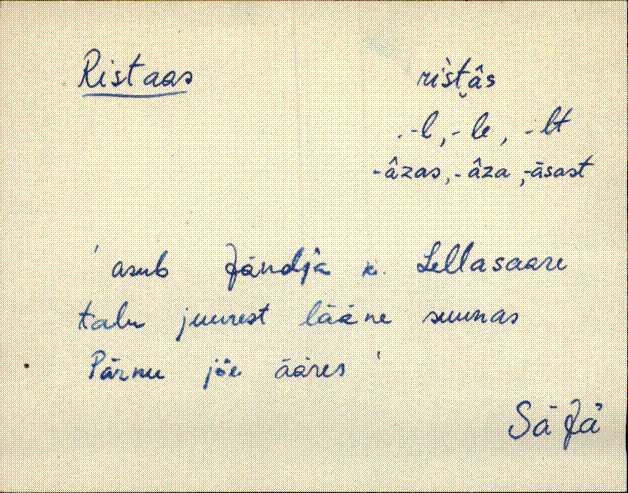 Ristaas rìstâs
-l, -le, -lt
-âzas, -âza, -āsast
' asub Jändja k. Lellasaare
talu juurest lääne suunas
Pärnu jõe ääres '
Sā Jä